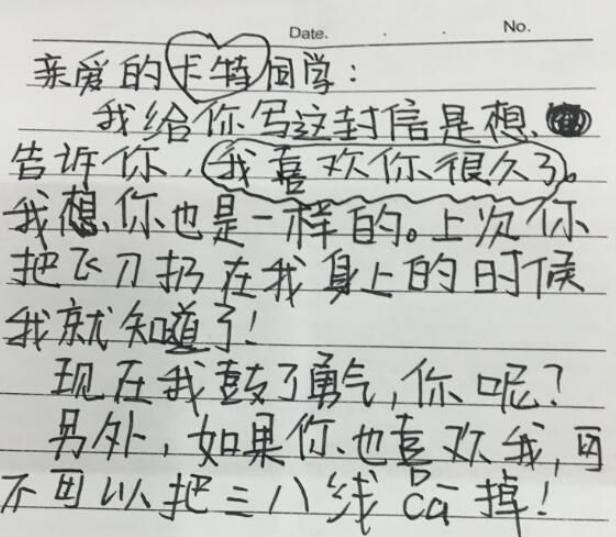 Date. No.
亲爱的卡特同学：
我给你写这封信是想、
告诉你，我喜欢你很久了。
我想、你也是一样的。上次你
把飞刀扔在我身上的时候
我就知道了！
现在我鼓了勇气，你呢？
另外，如果你、也喜欢我，可
不可以把三八线cā掉！